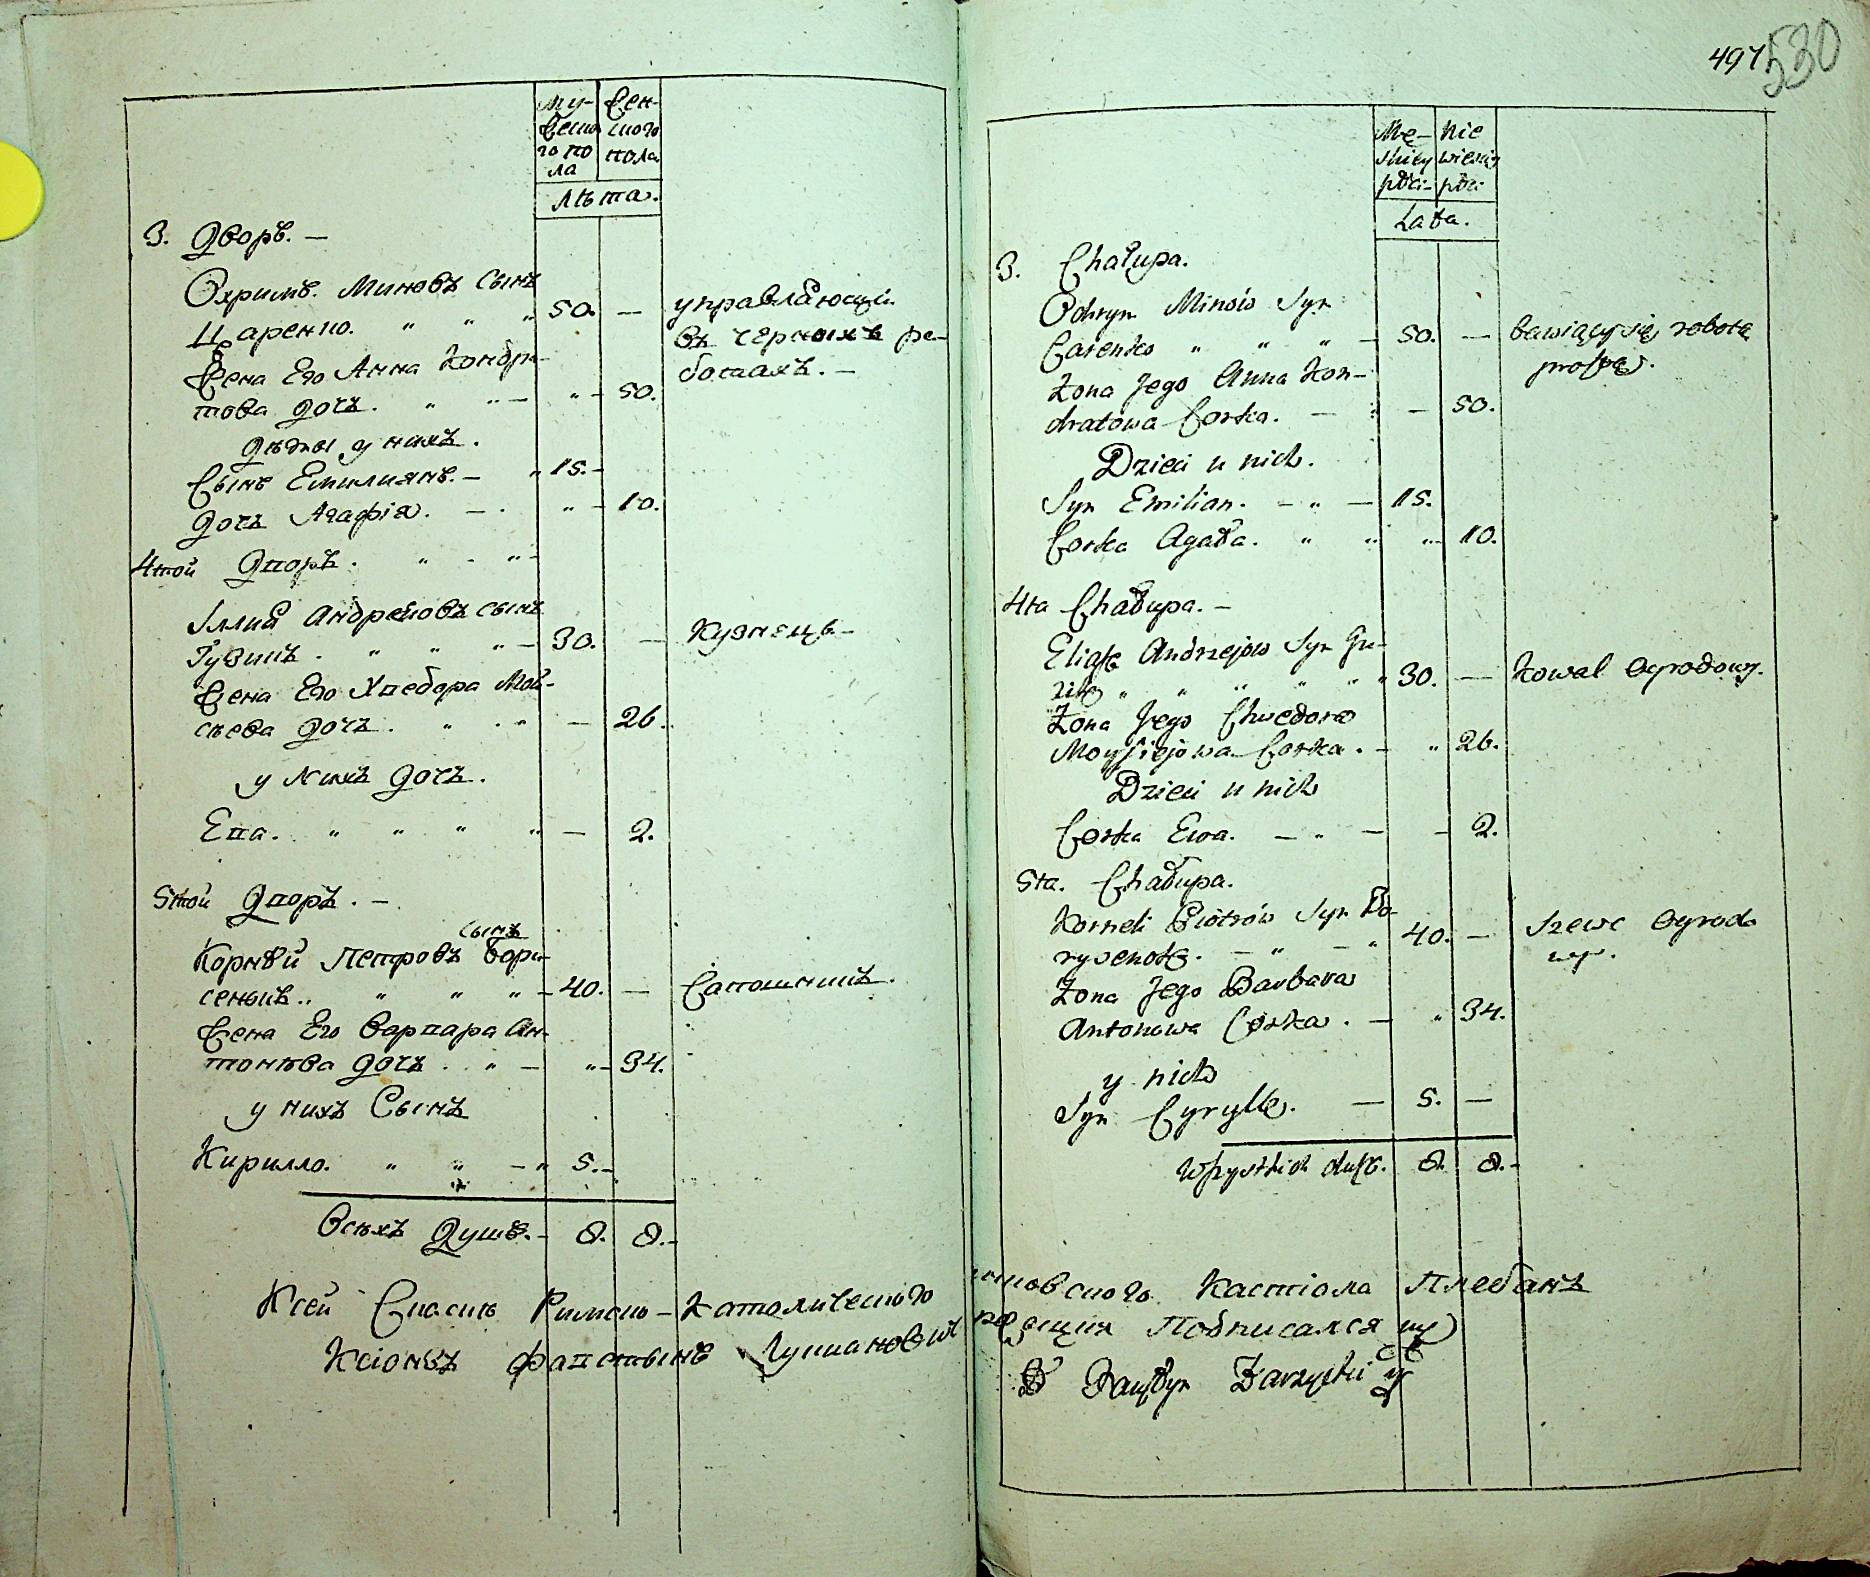 Му- Жен-
жеска ского
го по пола
ла
Лѣта.
3. Дворъ. —
Охримъ Миновъ Сынъ
Царенко. " " " 50. — управляющій
въ черныхъ ра-
Жена Его Анна Кондра-
ботахъ. —
това дочь. " " — " — 50.
дѣти у нихъ.
Сынъ Емилианъ. — " 15. —
дочь Агафія. — . " — 10.
4той Дворъ. " - " -
Іллия Андреiовъ сынъ
Гузикъ. " " " — 30. — Кузнецъ —
Жена Его Хведора Мой-
сѣева дочь. " . " — 26.
у нихъ дочь.
Ева. " " " " — 2.
5той Дворъ. —
сынъ
Корнѣй Петровъ Бори-
сенокъ.. " " " — 40. — Сапожникъ.
Жена Его Варвара Ан-
тонѣва дочь . " — " — 34.
у нихъ Сынъ
Кирилло. " " — " 5. —
Всѣхъ Душъ. — 8. 8. —
497 530
Mę- Nie
skiey wieściey
płci- płci-
Lata.
3. Chałupa.
Ochrym Minów Syn
Carenko " " " — 50. — bawiący się robotą
Zona Jego Anna Kon- prostą.
dratowa Corka. — " — 50.
Dzieci u nich.
Syn Emilian. — " — 15.
Corka Agata. " " " — 10.
4ta Chałupa. —
Eliasz Andrzejow Syn Gu-
zik " " " " " 30. — Kowal Ogrodowy.
Zona Jego Chwedora
Moysiejowa Corka. — " 26.
Dzieci u nich
Corka Ewa. — " — — 2.
5ta. Chałupa.
Korneli Piotrów Syn Bo-
rysenok. — " — " 40. — Szewc Ogrodo
wy.
Zona Jego Barbara
Antonowa Corka. — " 34.
y nich
Syn Cyryllo. — 5. —
Wszystkich dusz. 8. 8. —
Ксей Скаскѣ Римско-Католическаго
Костіола Плебанъ
Ксіонзъ Фавстынъ
Подписался